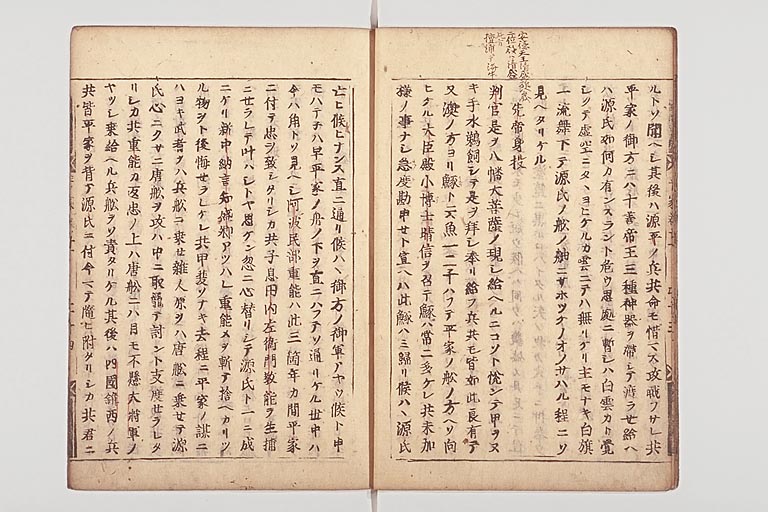 ルトソ聞ヘシ其後ハ源平ノ兵共命モ惜マス攻戦フサレ共
平家ノ御方ニハ十善帝王三種神器ヲ帯シテ渡ラセ給ヘハ
ハ源氏如何カ有ンスラント危ウ思処ニ暫シハ白雲カト覚
シクテ虚空ニタヽヨヒケルカ雲ニテハ無リケリ主モナキ白旗
一流舞下テ源氏ノ舩ノ舳ニサホツケノオノサハル程ニソ
見ヘタリケル
先帝身投
判官是ヲハ八幡大菩薩ノ現シ給ヘルニコソト悦シテ甲ヲヌ
キ手水鵜飼シテ是ヲ拝シ奉リ給フ兵共モ皆如此良有テ
又澳ノ方ヨリ鯆ト云魚一二千ハフテ平家ノ舩ノ方ヘソ向
ヒケル大臣殿小博士晴信ヲ召テ鯆ハ常ニ多ケレ共未加
様ノ事ナシ急度勘申セト宣ヘハ此鯆ハミ歸リ候ハヽ源氏
亡ヒ候ヒナンス直ニ通リ候ハヽ御方ノ御軍アヤウ候ト申
モハテヌハ早平家ノ舟ノ下ヲ直ニハフテソ通リケル世中ハ
今ハ角トソ見ヘシ阿波民部重能ハ此三箇年カ間平家
ニ付テ忠ヲ致シタリシカ共子息田内左衛門教能ヲ生捕
ニセラレテ叶ハシトヤ思ケン忽ニ心替リシテ源氏ト一ニ成
ニケリ新中納言知盛卿アツハレ重能メヲ斬テ捨ヘカリツ
ル物ヲト後悔セラレケレ共甲斐ソナキ去程ニ平家ノ謀ニ
ハヨキ武者ヲハ兵舩ニ乗セ雑人原ヲハ唐舩ニ乗セテ源
氏心ニクサニ唐舩ヲ攻ハ中ニ取籠テ討ント支度セラレタ
リシカ共重能カ返忠ノ上ハ唐舩ニハ目モ不懸大将軍ノ
ヤツシ乗給ヘル兵舩ヲソ責タリケル其後ハ四國鎮西ノ兵
共皆平家ヲ背テ源氏ニ付今マテ随ヒ附タリシカ共君ニ